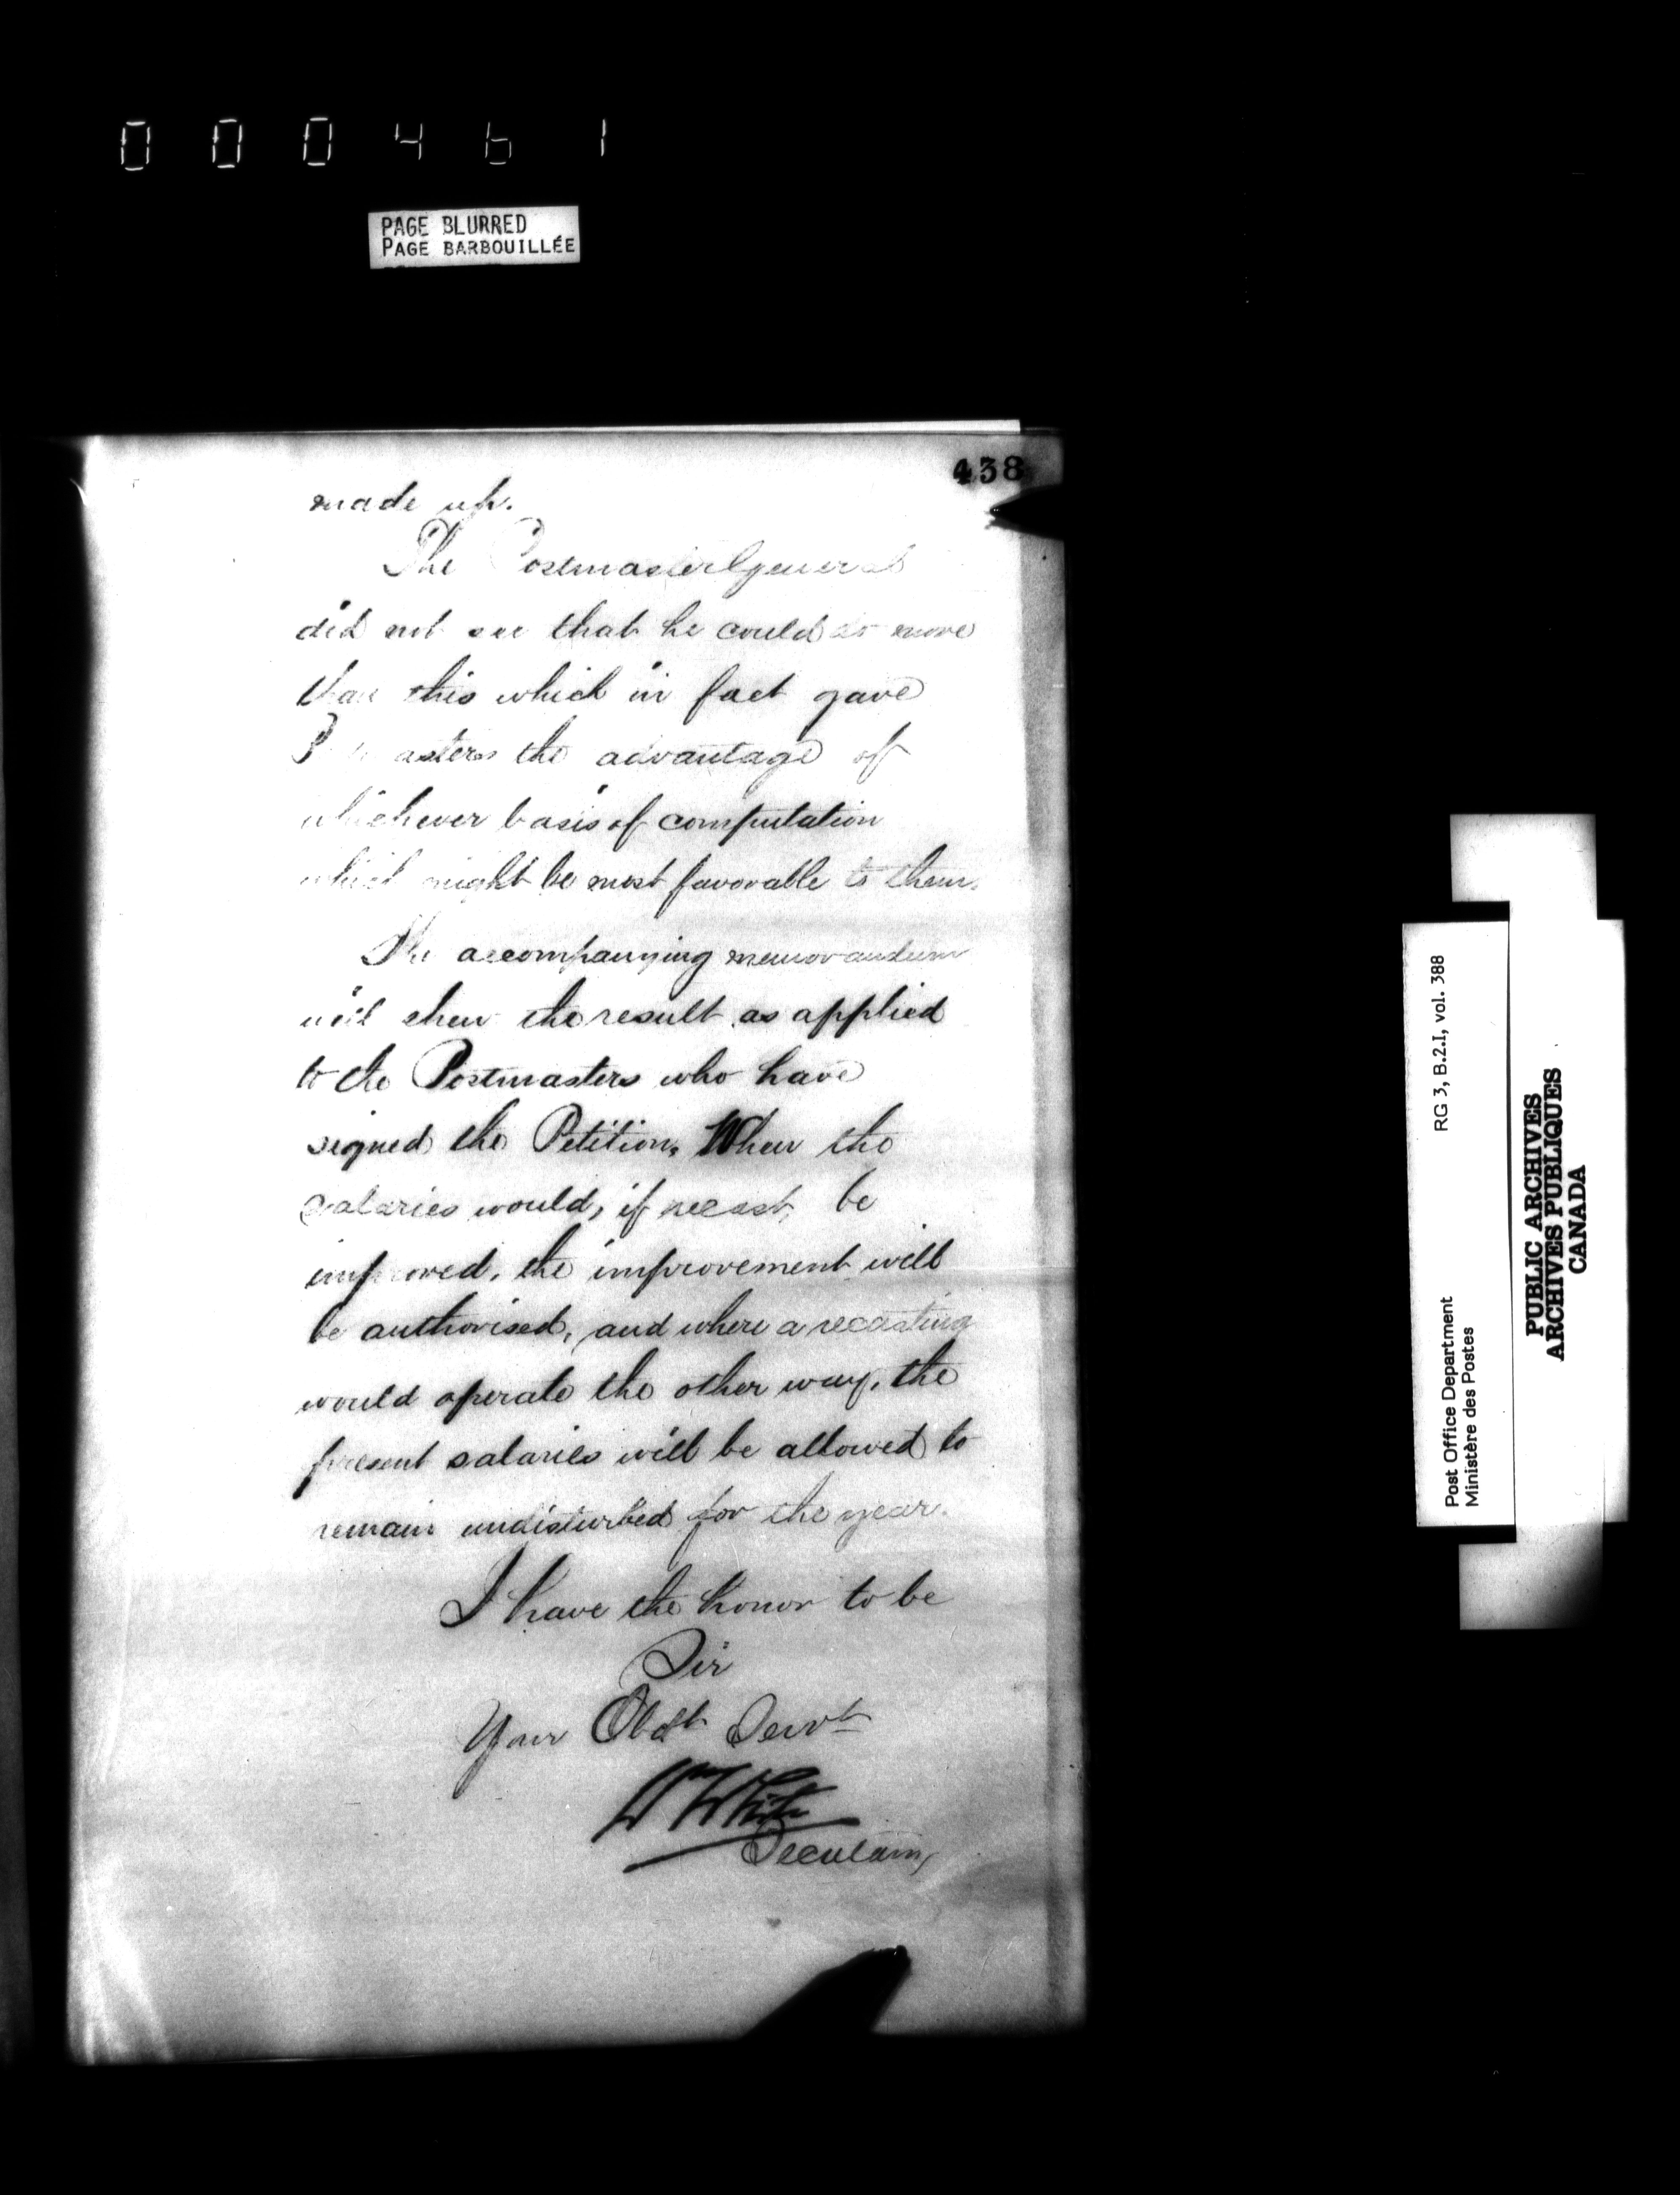 000461
PAGE BLURRED
PAGE BARBOUILLÉE
438
made up.
The Postmaster General
did not see that he could do more
than this which in fact gave
Postmasters the advantage of
whichever basis of computation
which might be most favorable to them.
The accompanying memorandum
will shew the result as applied
to the Postmasters who have
signed the Petition. When the
salaries would, if recast, be
improved, the improvement will
be authorised, and where a recasting
would operate the other way, the
present salaries will be allowed to
remain undisturbed for the year.
I have the honor to be
Sir
Your Obdt Servt
W White
Secretary
Post Office Department RG 3, B.2.I, vol. 388
Ministère des Postes
PUBLIC ARCHIVES
ARCHIVES PUBLIQUES
CANADA